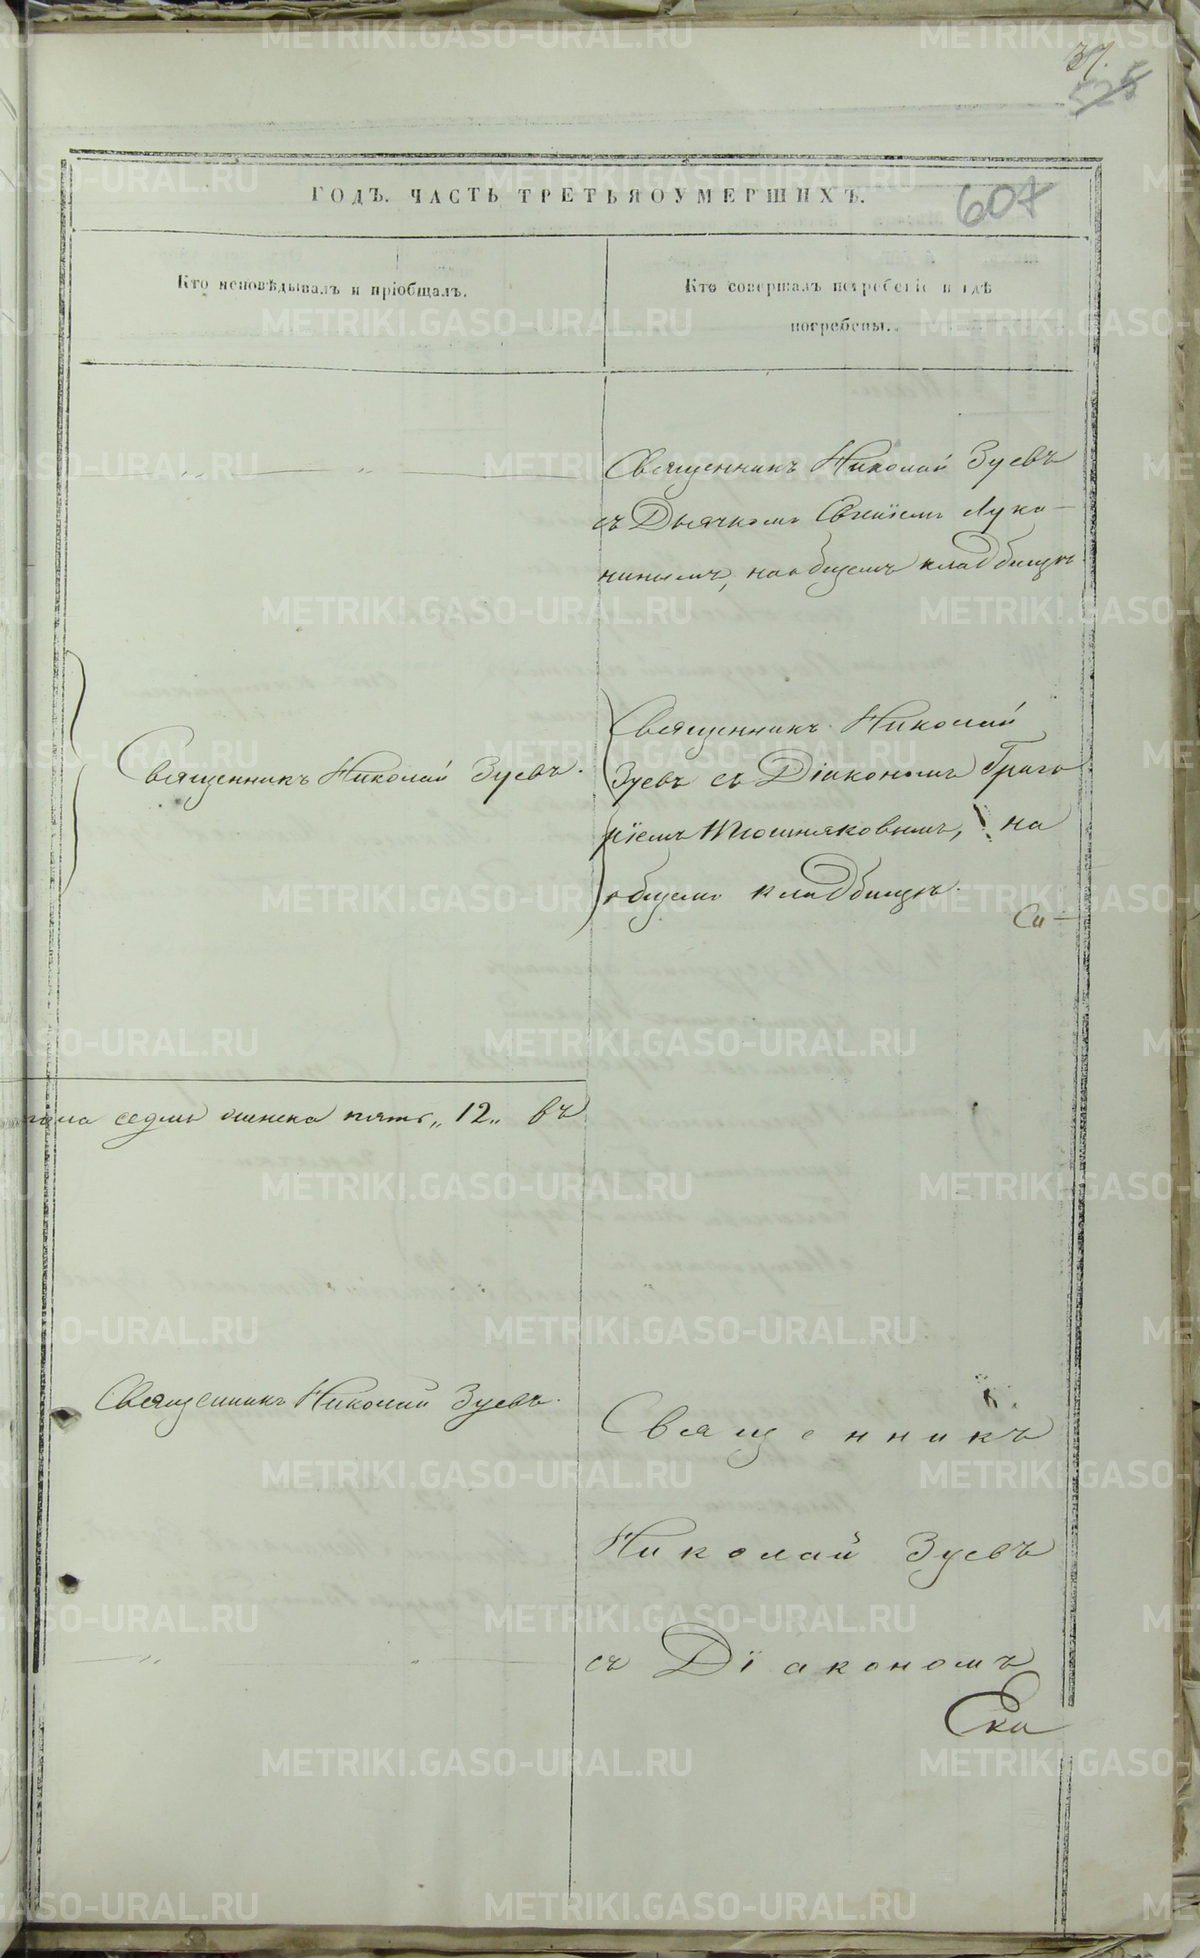 37.
525
ГОДЪ. ЧАСТЬ ТРЕТЬЯ О УМЕРШИХЪ.
607
Кто исповѣдывалъ и пріобщалъ.
Кто совершалъ погребеніе и гдѣ
погребены.
Священникъ Николай Зуевъ
съ Дьячкомъ Лука-
нинымъ, на общемъ кладбищѣ.
Священникъ Николай Зуевъ.
Священникъ Николай
Зуевъ съ Діакономъ Григо
ріемъ Тюшняковымъ, на
общемъ кладбищѣ.
седмь женска пять „12„ въ
Священникъ Николай Зуевъ.
Священникъ
Николай Зуевъ
съ Діакономъ
Ека
METRIKI.GASO-URAL.RU